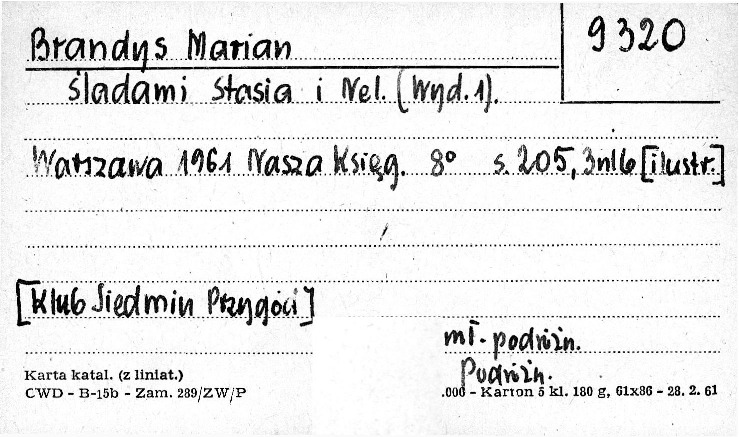 Brandys Marian
9320
Śladami Stasia i Nel. (Wyd. 1).
Warszawa 1961 Nasza Księg. 8° s. 205, 3nlb [ilustr.]
[Klub Siedmin Przygóci]
mł. podróżn.
Podróżn.
Karta katal. (z liniat.)
CWD - B-15b - Zam. 289/ZW/P
.000 - Karton 5 kl. 180 g, 61x86 - 28. 2. 61